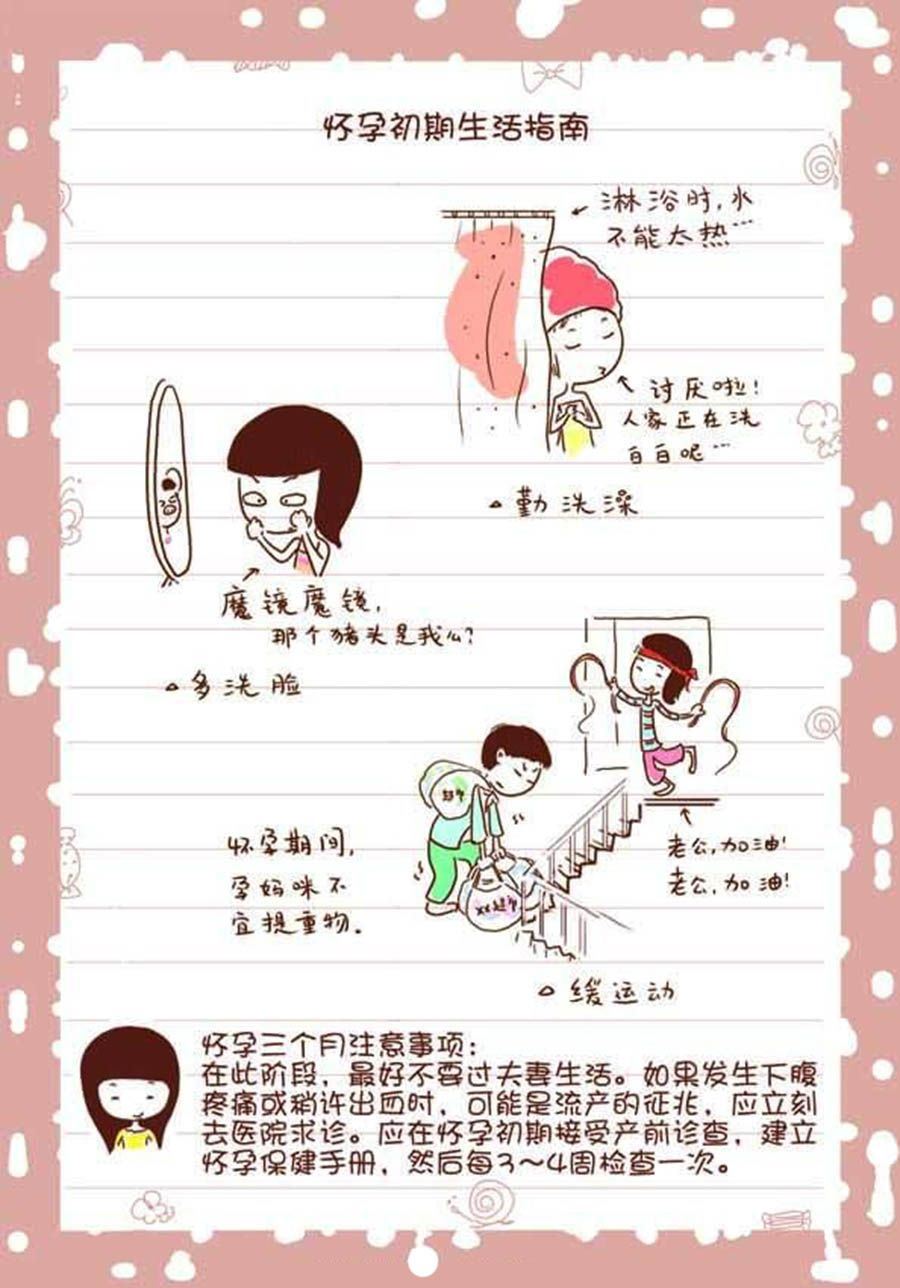 怀孕初期生活指南
淋浴时,水
不能太热…
讨厌啦!
人家正在洗
白白呢…
▵勤洗澡
魔镜魔镜,
那个猪头是我么?
▵多洗脸
超市
怀孕期间,
孕妈咪不
宜提重物.
老公,加油!
老公,加油!
XX超市
▵缓运动
怀孕三个月注意事项:
在此阶段,最好不要过夫妻生活。如果发生下腹
疼痛或稍许出血时,可能是流产的征兆,应立刻
去医院求诊。应在怀孕初期接受产前诊查,建立
怀孕保健手册,然后每3～4周检查一次。